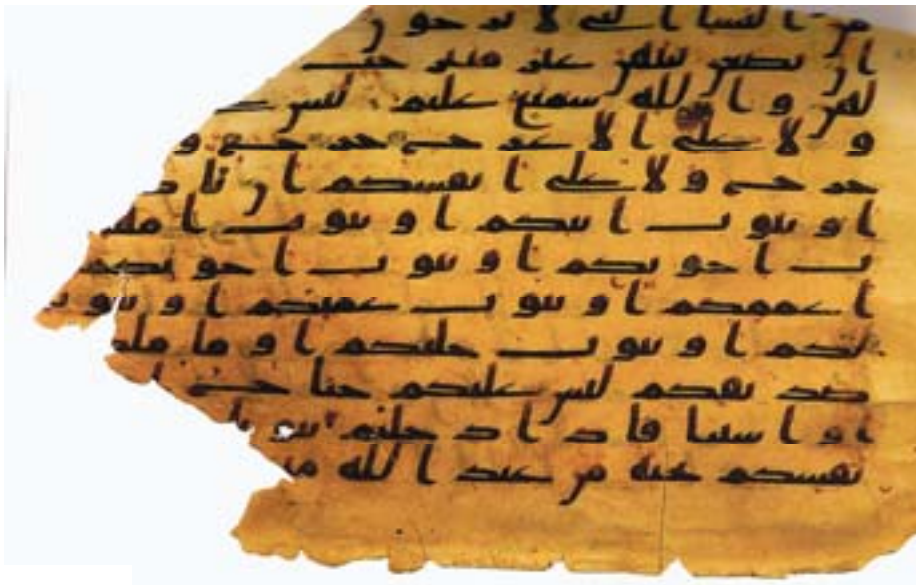 من النسا التي لا يرجو
ان يضعن ثيبهن غير متبرجت
لهن والله سميع عليم ليس
ولا على الاعرج حرج و
حرج ولا على انفسكم ان تا
او بيوت ابيكم او بيوت امه
ت اخونكم او بيوت اخوتكم
اعممكم او بيوت عمتكم او بيو
لتكم او بيوت خلتكم او ما ملـ
صديقكم ليس عليكم جناح
او اشتتا فاذا دخلتم بيو
نفسكم تحية من عند الله م